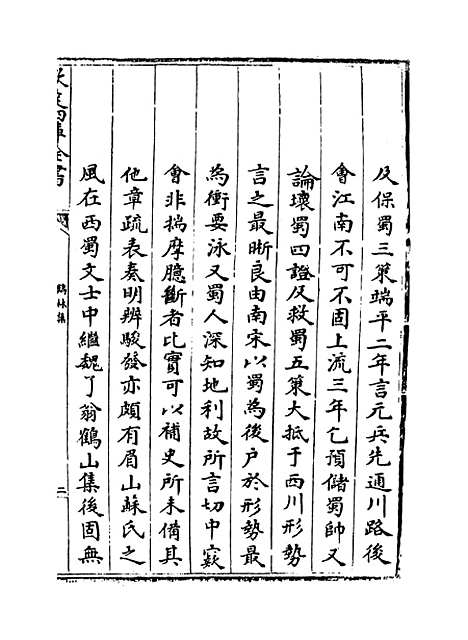 及保蜀三策端平二年言元兵先通川路後
會江南不可不固上流三年乞預儲蜀帥又
論壞蜀四證及救蜀五策大抵于西川形勢
言之最晣良由南宋以蜀為後户於形勢最
為衝要泳又蜀人深知地利故所言切中窽
會非揣摩臆斷者比實可以補史所未備其
他章疏表奏明辨駿發亦頗有眉山蘇氏之
風在西蜀文士中繼魏了翁鶴山集後固無
欽定四庫全書
鶴林集
二